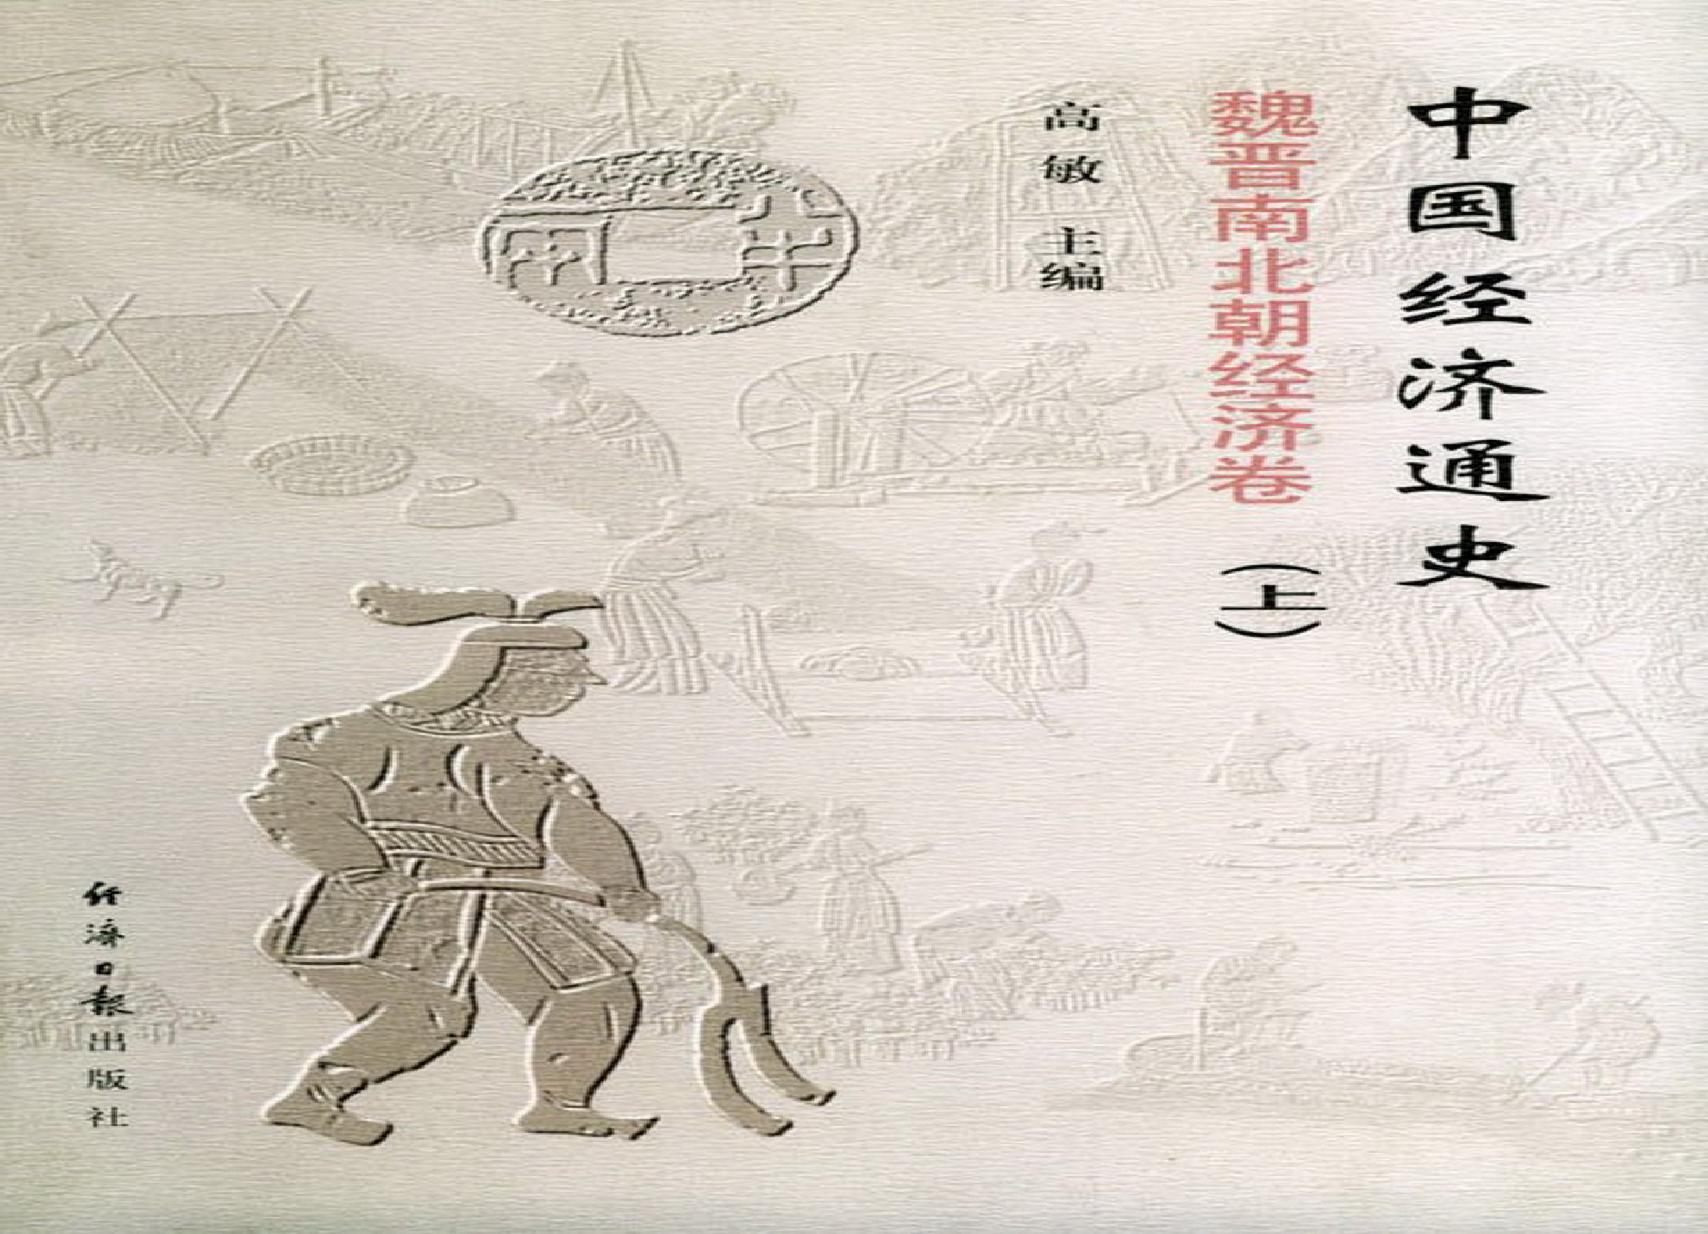 中国经济通史
魏晋南北朝经济卷（上）
高敏 主编
半两
经济日報出版社